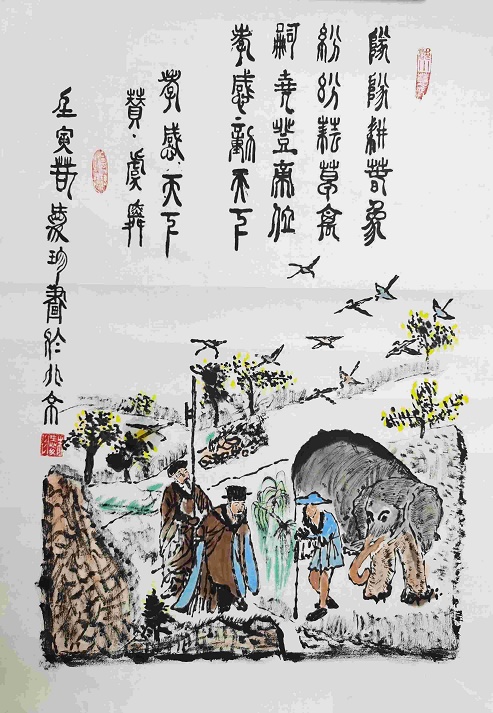 隊隊耕春象
紛紛耘草禽
嗣堯登帝位
孝感動天下
孝感天下
贊虞舜
壬寅春愛珍書於北京